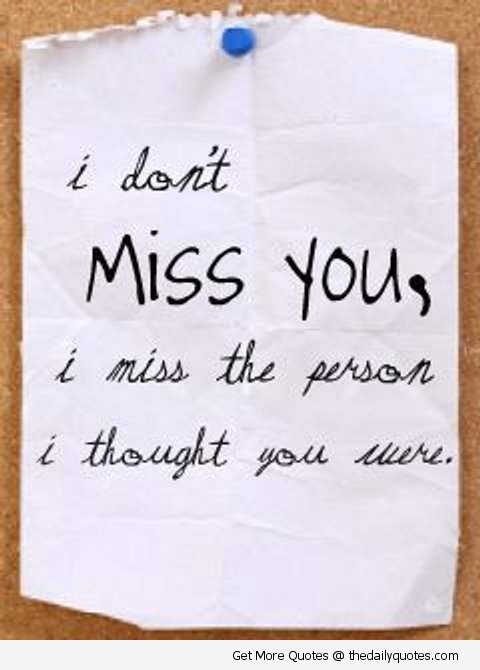 i don't
MiSS YOU,
i miss the person
i thought you were.
Get More Quotes @ thedailyquotes.com